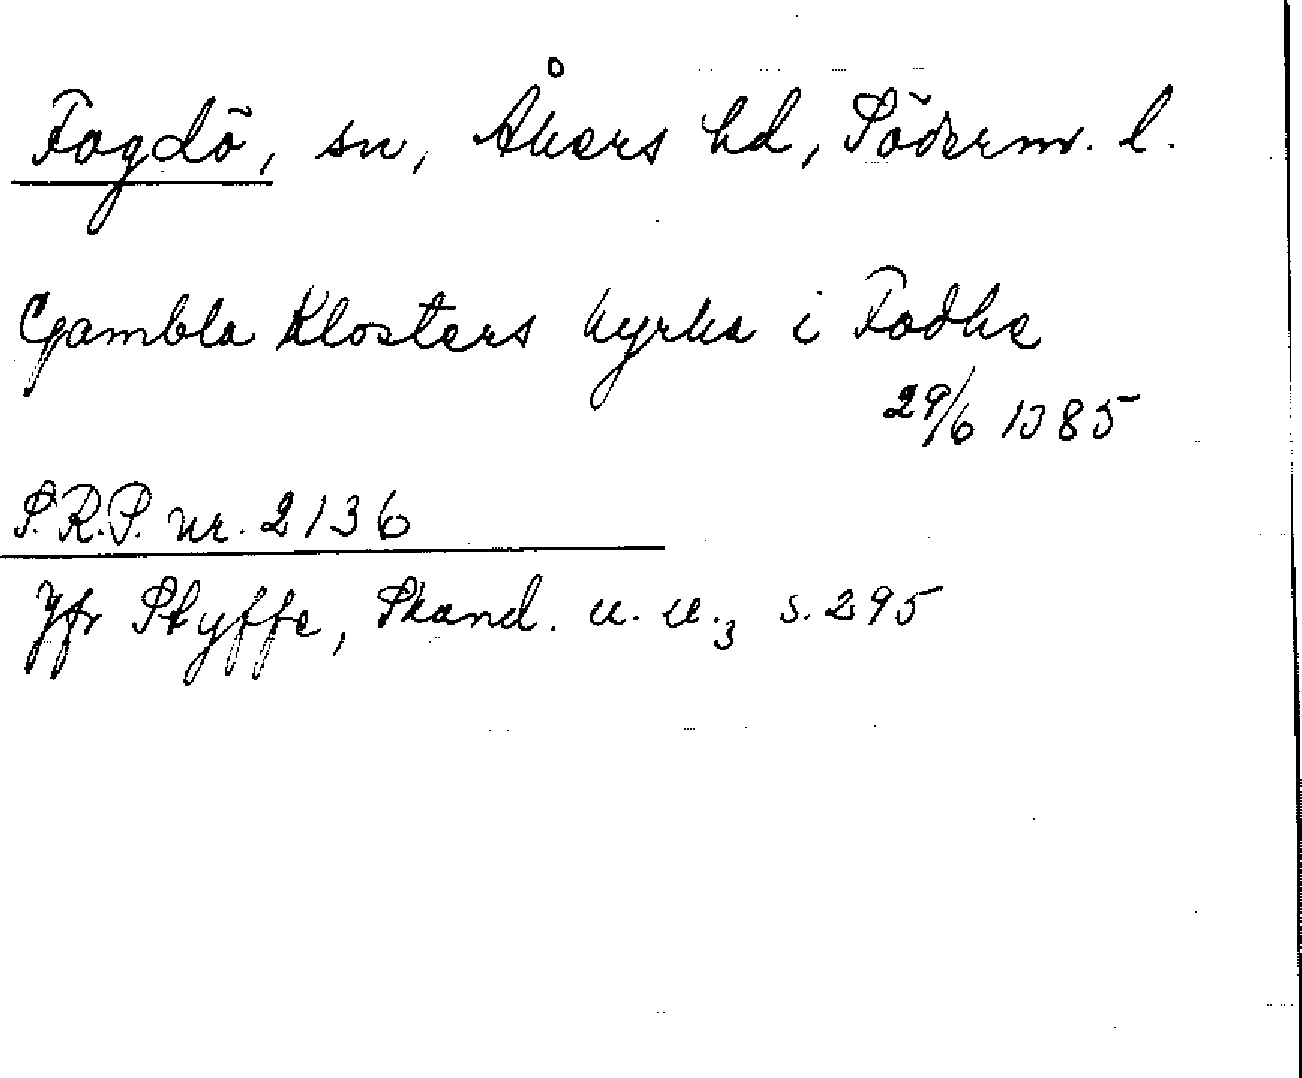 Fogdö, sn, Åkers hd, Söderm. l.
Gambla Klosters kyrka i Fodhe
29/6 1385
S.R.P. nr. 2136
Jfr Styffe, Skand. u. u.3 s. 295